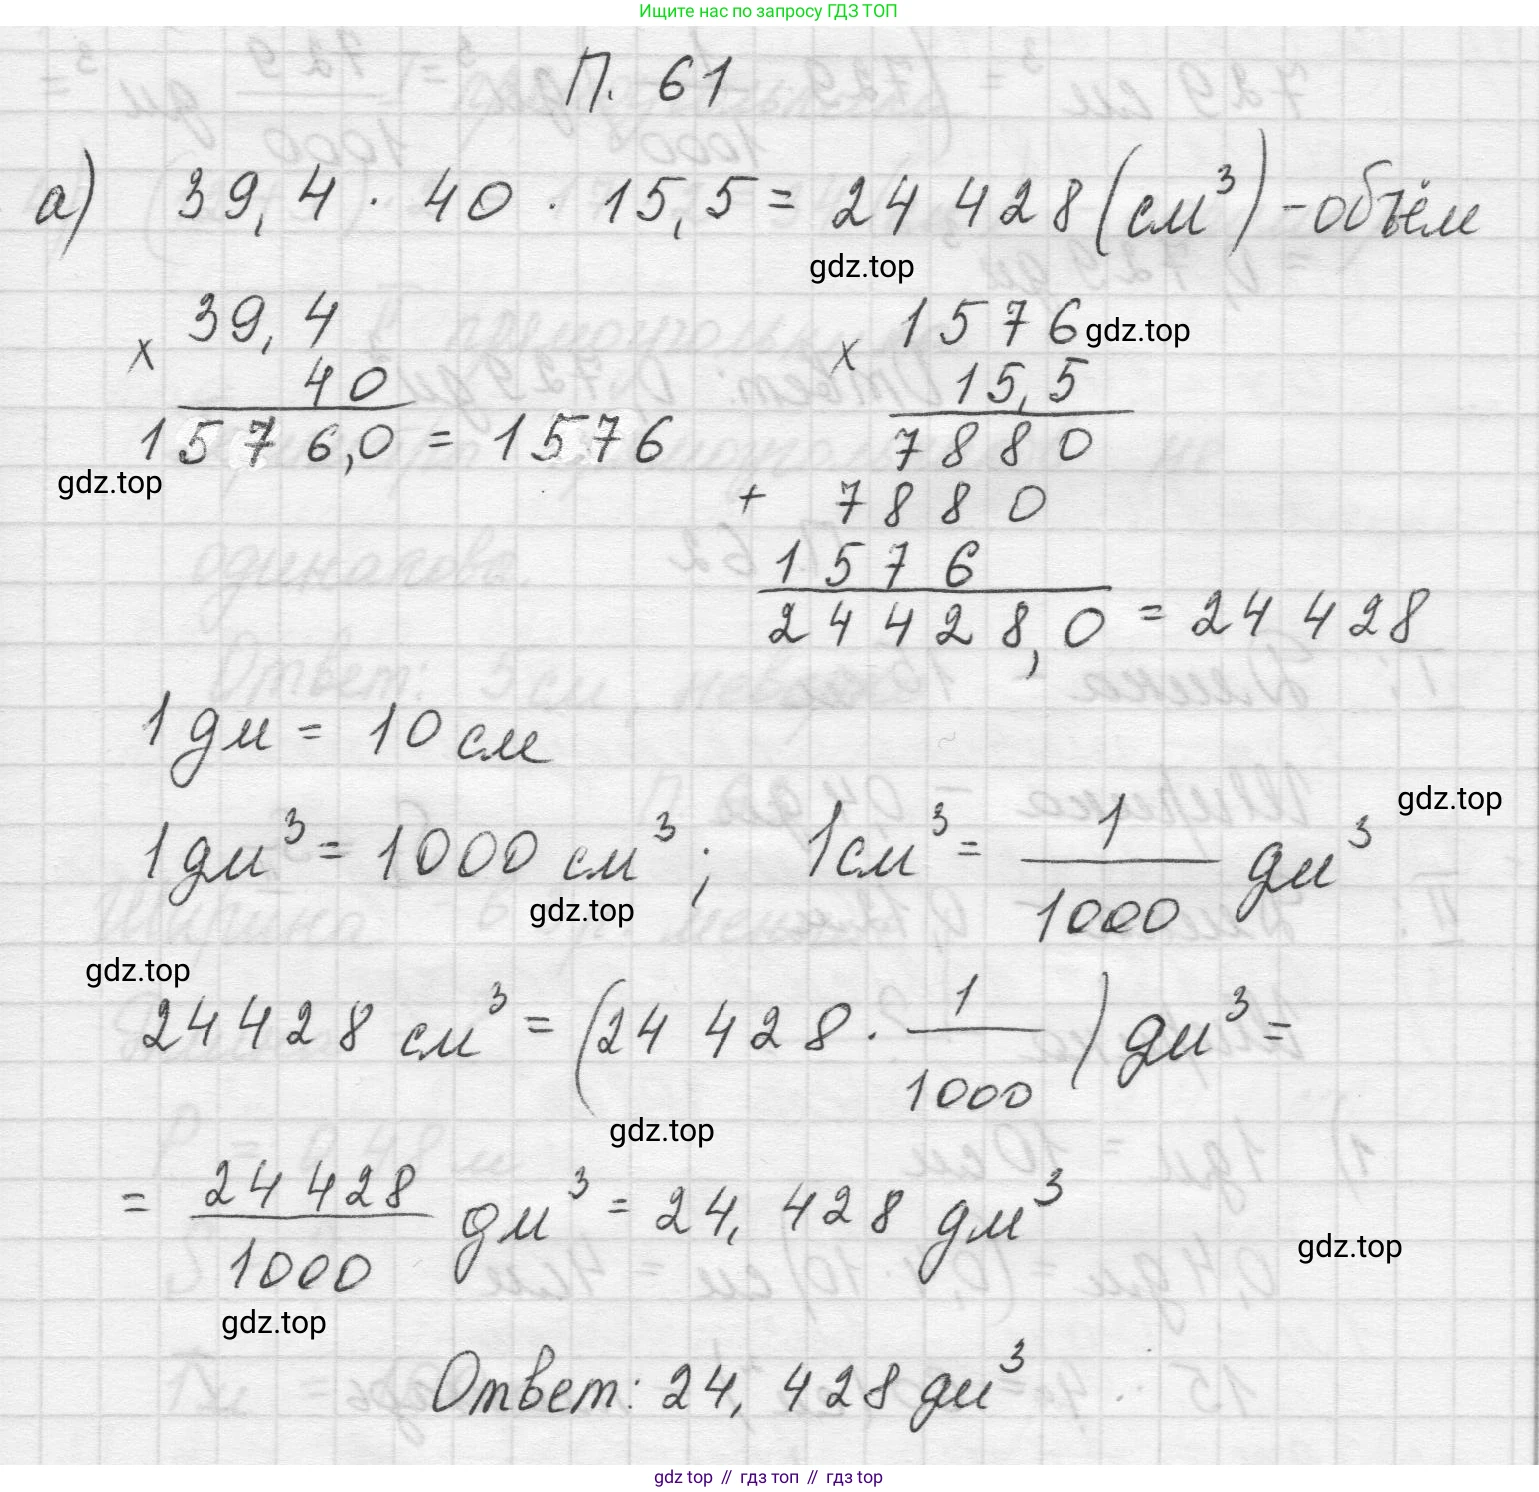 Ищите нас по запросу ГДЗ ТОП
П. 61
а) 39,4 · 40 · 15,5 = 24 428 (см³) - объём
gdz.top
× 39,4
40
15 7 6,0 = 1576
gdz.top
× 1576
gdz.top
15,5
7880
+ 7880
1576
24428,0 = 24 428
1 дм = 10 см
gdz.top
1 дм³ = 1000 см³; 1 см³ = 1/1000 дм³
gdz.top
gdz.top
24428 см³ = (24 428 · 1/1000) дм³ =
gdz.top
= 24 428/1000 дм³ = 24,428 дм³
gdz.top
gdz.top
Ответ: 24,428 дм³
gdz top // гдз топ // гдз top